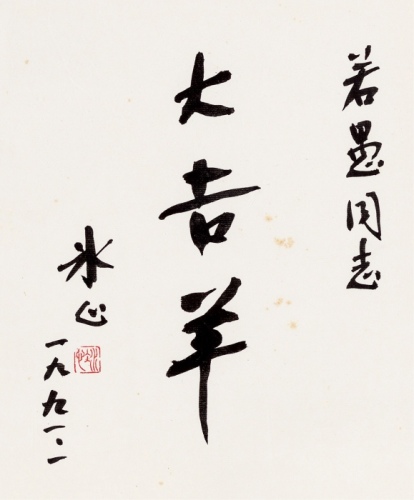 若愚同志
大吉羊
冰心
一九九一.一